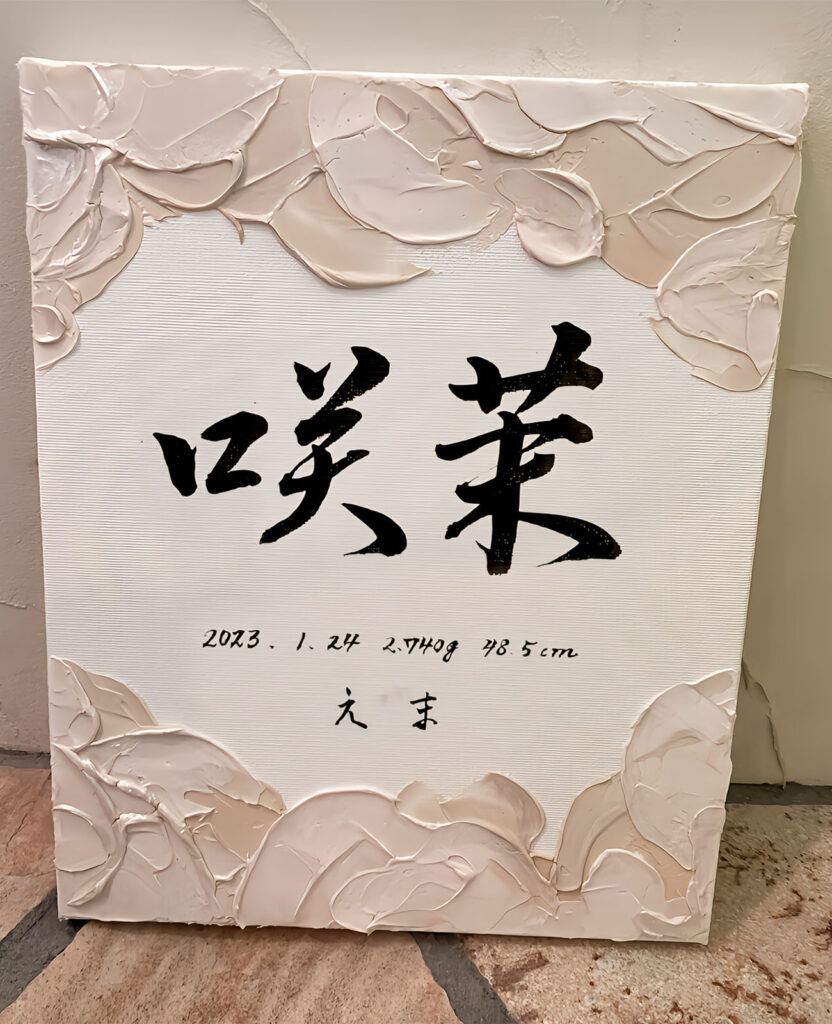 咲茉
2023. 1. 24 2.740g 48.5cm
えま